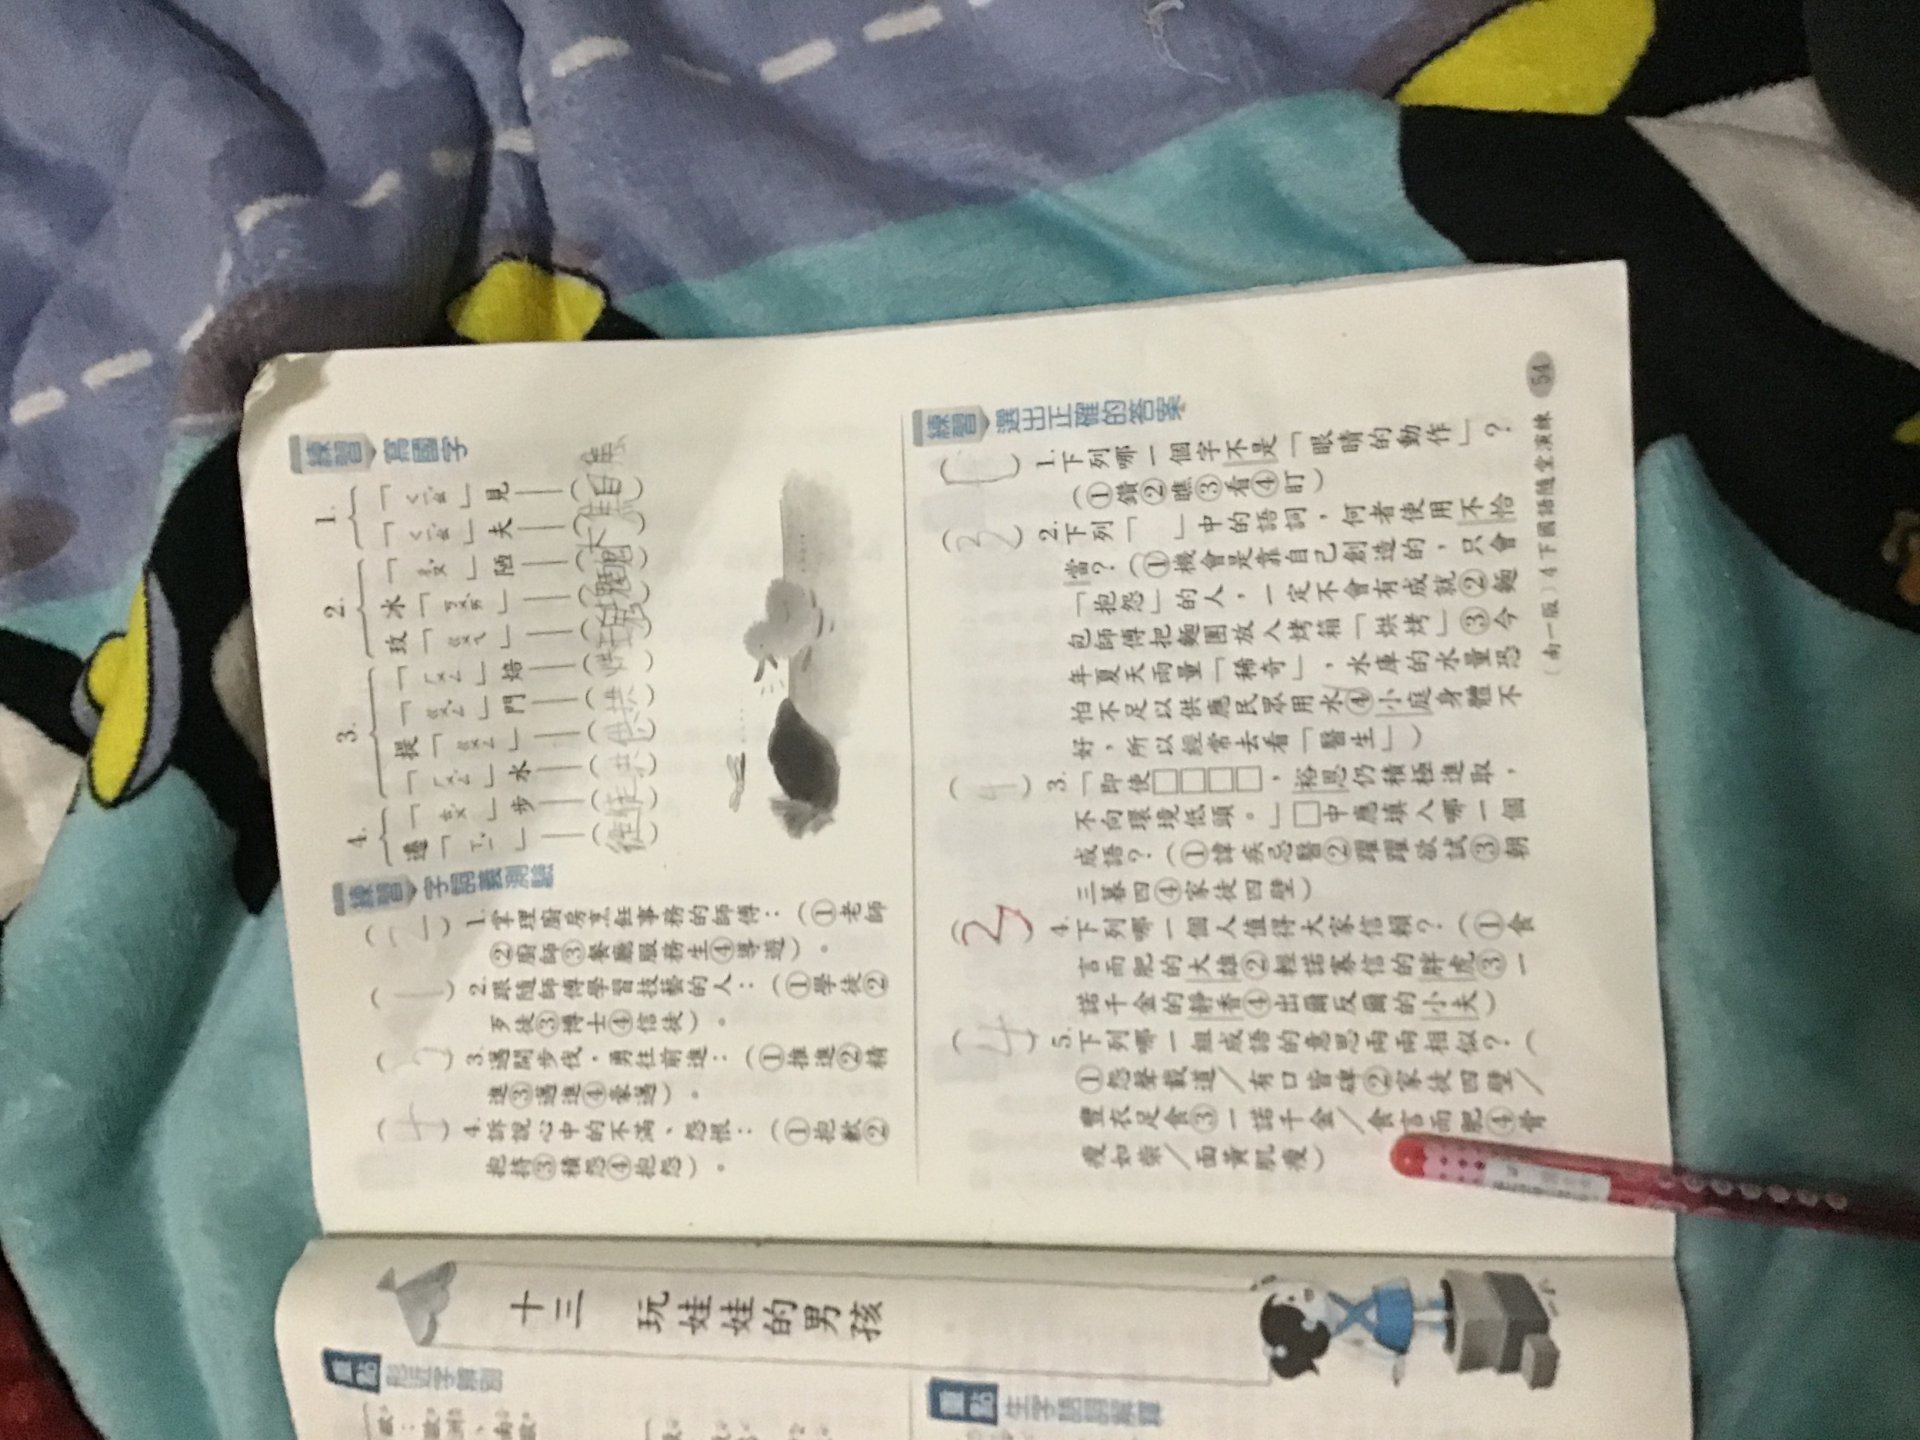 練習 寫國字
1.
「ㄑㄧㄠˊ」見
「ㄑㄧㄠˊ」夫
2.
「」陋
冰「」
玫「ㄍㄨㄟ」
3.
「ㄏㄨㄥ」焙
「ㄍㄨㄥˇ」門
提「ㄍㄨㄥ」
「ㄏㄨㄥˊ」水
4.
「ㄊㄨˊ」步
遷「ㄒㄧˇ」
練習 字詞義測驗
(2) 1.掌理廚房烹飪事務的師傅:(①老師
②廚師③餐廳服務生④導遊)。
(1) 2.跟隨師傅學習技藝的人:(①學徒②
歹徒③博士④信徒)。
( ) 3.邁開步伐,勇往前進:(①推進②精
進③邁進④豪邁)。
(4) 4.訴說心中的不滿、怨恨:(①抱歉②
抱持③積怨④抱怨)。
練習 選出正確的答案
(1) 1.下列哪一個字不是「眼睛的動作」?
(①鑽②瞧③看④盯)
(3) 2.下列「 」中的語詞,何者使用不恰
當?(①機會是靠自己創造的,只會
「抱怨」的人,一定不會有成就②麵
包師傅把麵團放入烤箱「烘烤」③今
年夏天雨量「稀奇」,水庫的水量恐
怕不足以供應民眾用水④小庭身體不
好,所以經常去看「醫生」)
(4) 3.「即使□□□□,裕恩仍積極進取,
不向環境低頭。」□中應填入哪一個
成語?(①諱疾忌醫②躍躍欲試③朝
三暮四④家徒四壁)
(3) 4.下列哪一個人值得大家信賴?(①食
言而肥的大雄②輕諾寡信的胖虎③一
諾千金的靜香④出爾反爾的小夫)
(4) 5.下列哪一組成語的意思兩兩相似?(
①怨聲載道/有口皆碑②家徒四壁/
豐衣足食③一諾千金/食言而肥④骨
瘦如柴/面黃肌瘦)
(南一版)4下國語隨堂演練 54
十三 玩娃娃的男孩
重點 形近字辨別
重點 生字語詞解釋